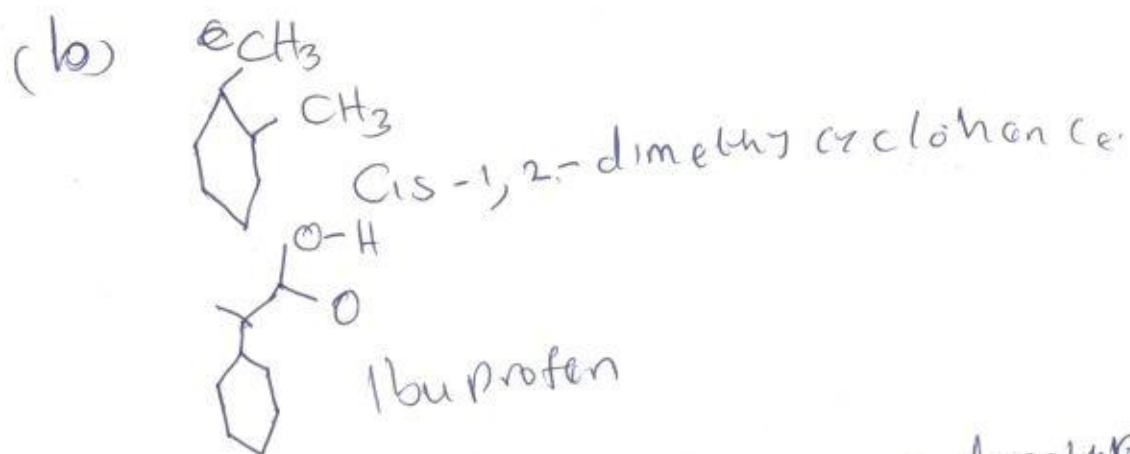 (b) CH3
CH3
Cis-1,2.-dimethy cyclohance.
O-H
O
Ibuprofen